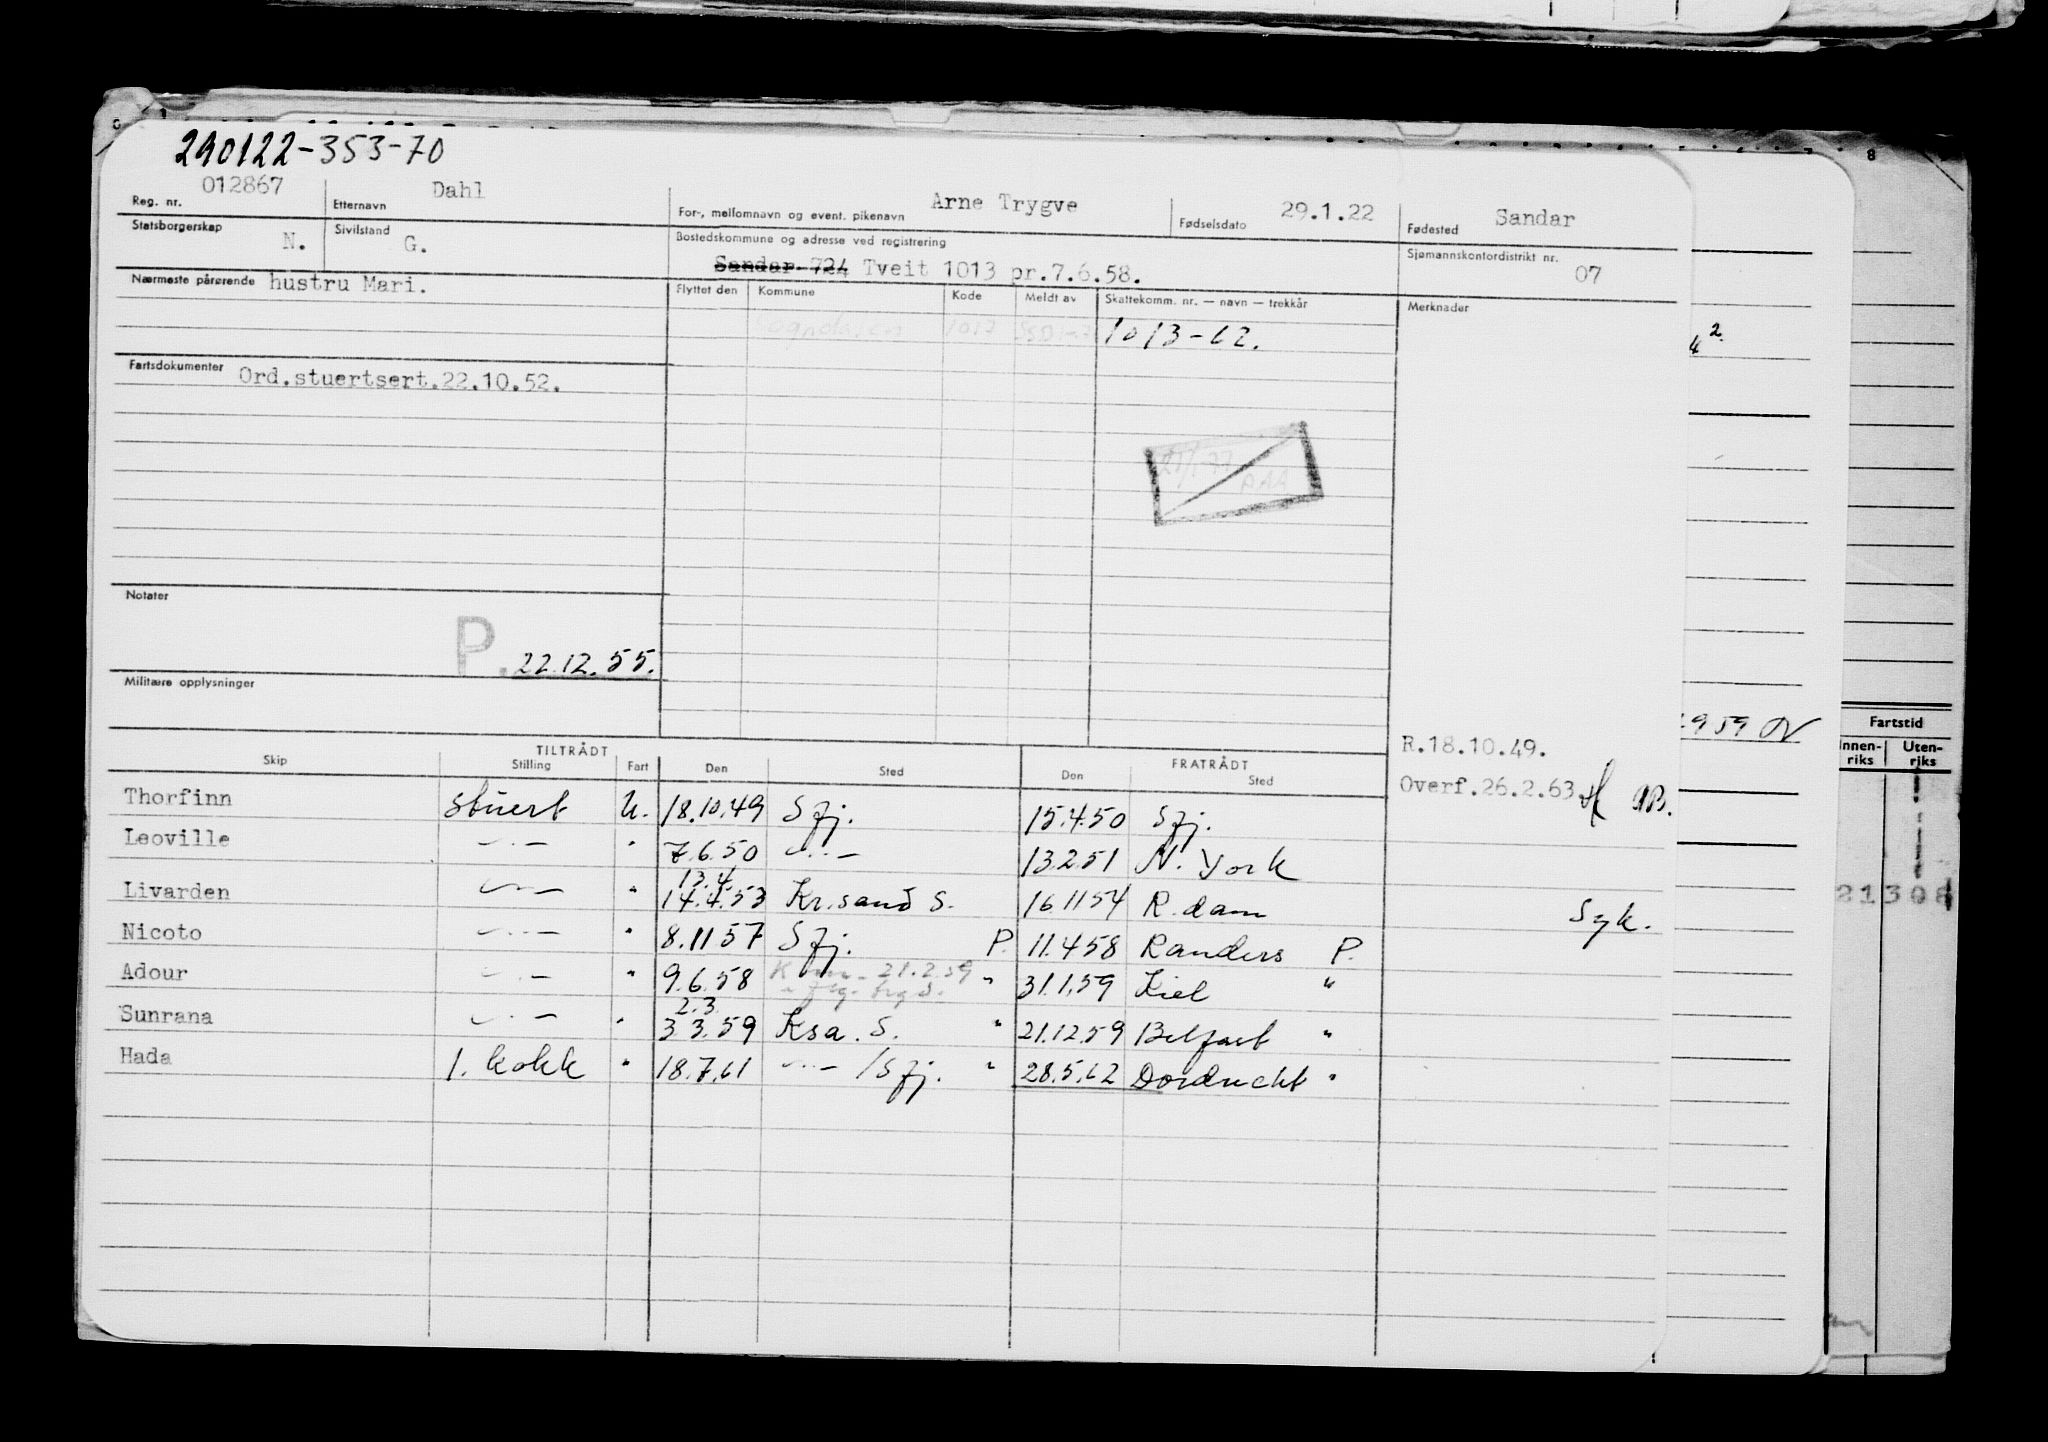 290122-353-70
Reg. nr. 012867 Etternavn Dahl For-, mellomnavn og event. pikenavn Arne Trygve Fødselsdato 29.1.22 Fødested Sandar
Statsborgerskap N. Sivilstand G. Bostedskommune og adresse ved registrering Sjømannskontordistrikt nr. 07
Sandar 724 Tveit 1013 pr.7.6.58.
Nærmeste pårørende hustru Mari. Flyttet den Kommune Kode Meldt av Skattekomm. nr. — navn — trekkår Merknader
1017 1013-62.
4 2.
Fartsdokumenter Ord.stuertsert.22.10.52.
Notater
P. 22.12.55.
Militære opplysninger
1959
R.18.10.49.
Overf.26.2.63 AB.
Fartstid
Innen-riks Uten-riks
TILTRÅDT FRATRÅDT
Skip Stilling Fart Den Sted Den Sted
Thorfinn Stuert U. 18.10.49 Sfj. 15.4.50 Sfj.
Leoville —"— " 7.6.50 —"— 13.2.51 N. York
13.4.
Livarden —"— " 14.4.53 Kr.sand S. 16.11.54 R.dam Syk.
21306
Nicoto —"— " 8.11.57 Sfj. P. 11.4.58 Randers P.
Adour —"— " 9.6.58 21.2.59 " 31.1.59 Kiel "
2.3.
Sunrana —"— " 3.3.59 Ksa. S. " 21.12.59 Belfast "
Hada 1. kokk " 18.7.61 —"— /Sfj. " 28.5.62 Dordrecht "